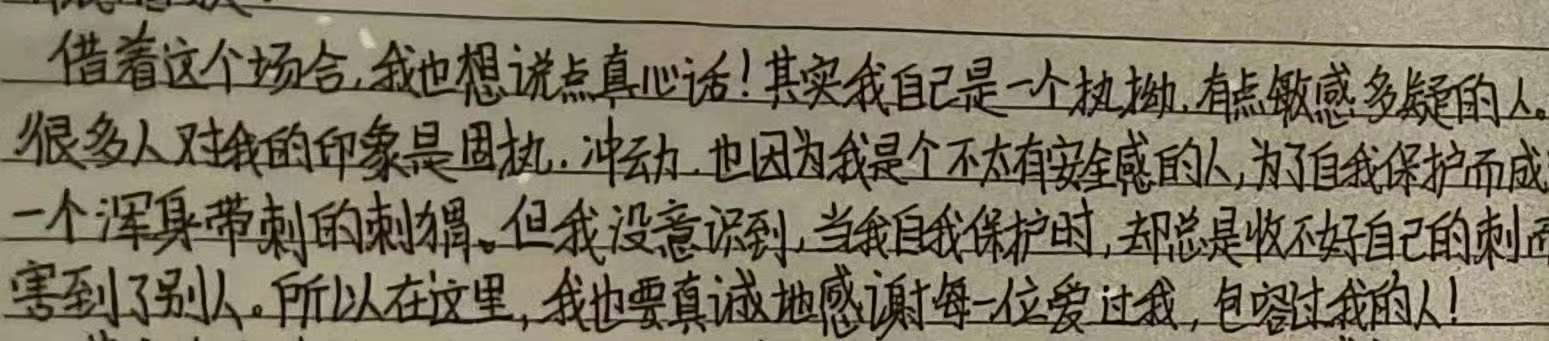 借着这个场合,我也想说点真心话!其实我自己是一个执拗、有点敏感多疑的人。
很多人对我的印象是固执、冲动、也因为我是个不太有安全感的人,为了自我保护而成
一个浑身带刺的刺猬。但我没意识到,当我自我保护时,却总是收不好自己的刺而
害到了别人。所以在这里,我也要真诚地感谢每一位爱过我,包容过我的人!